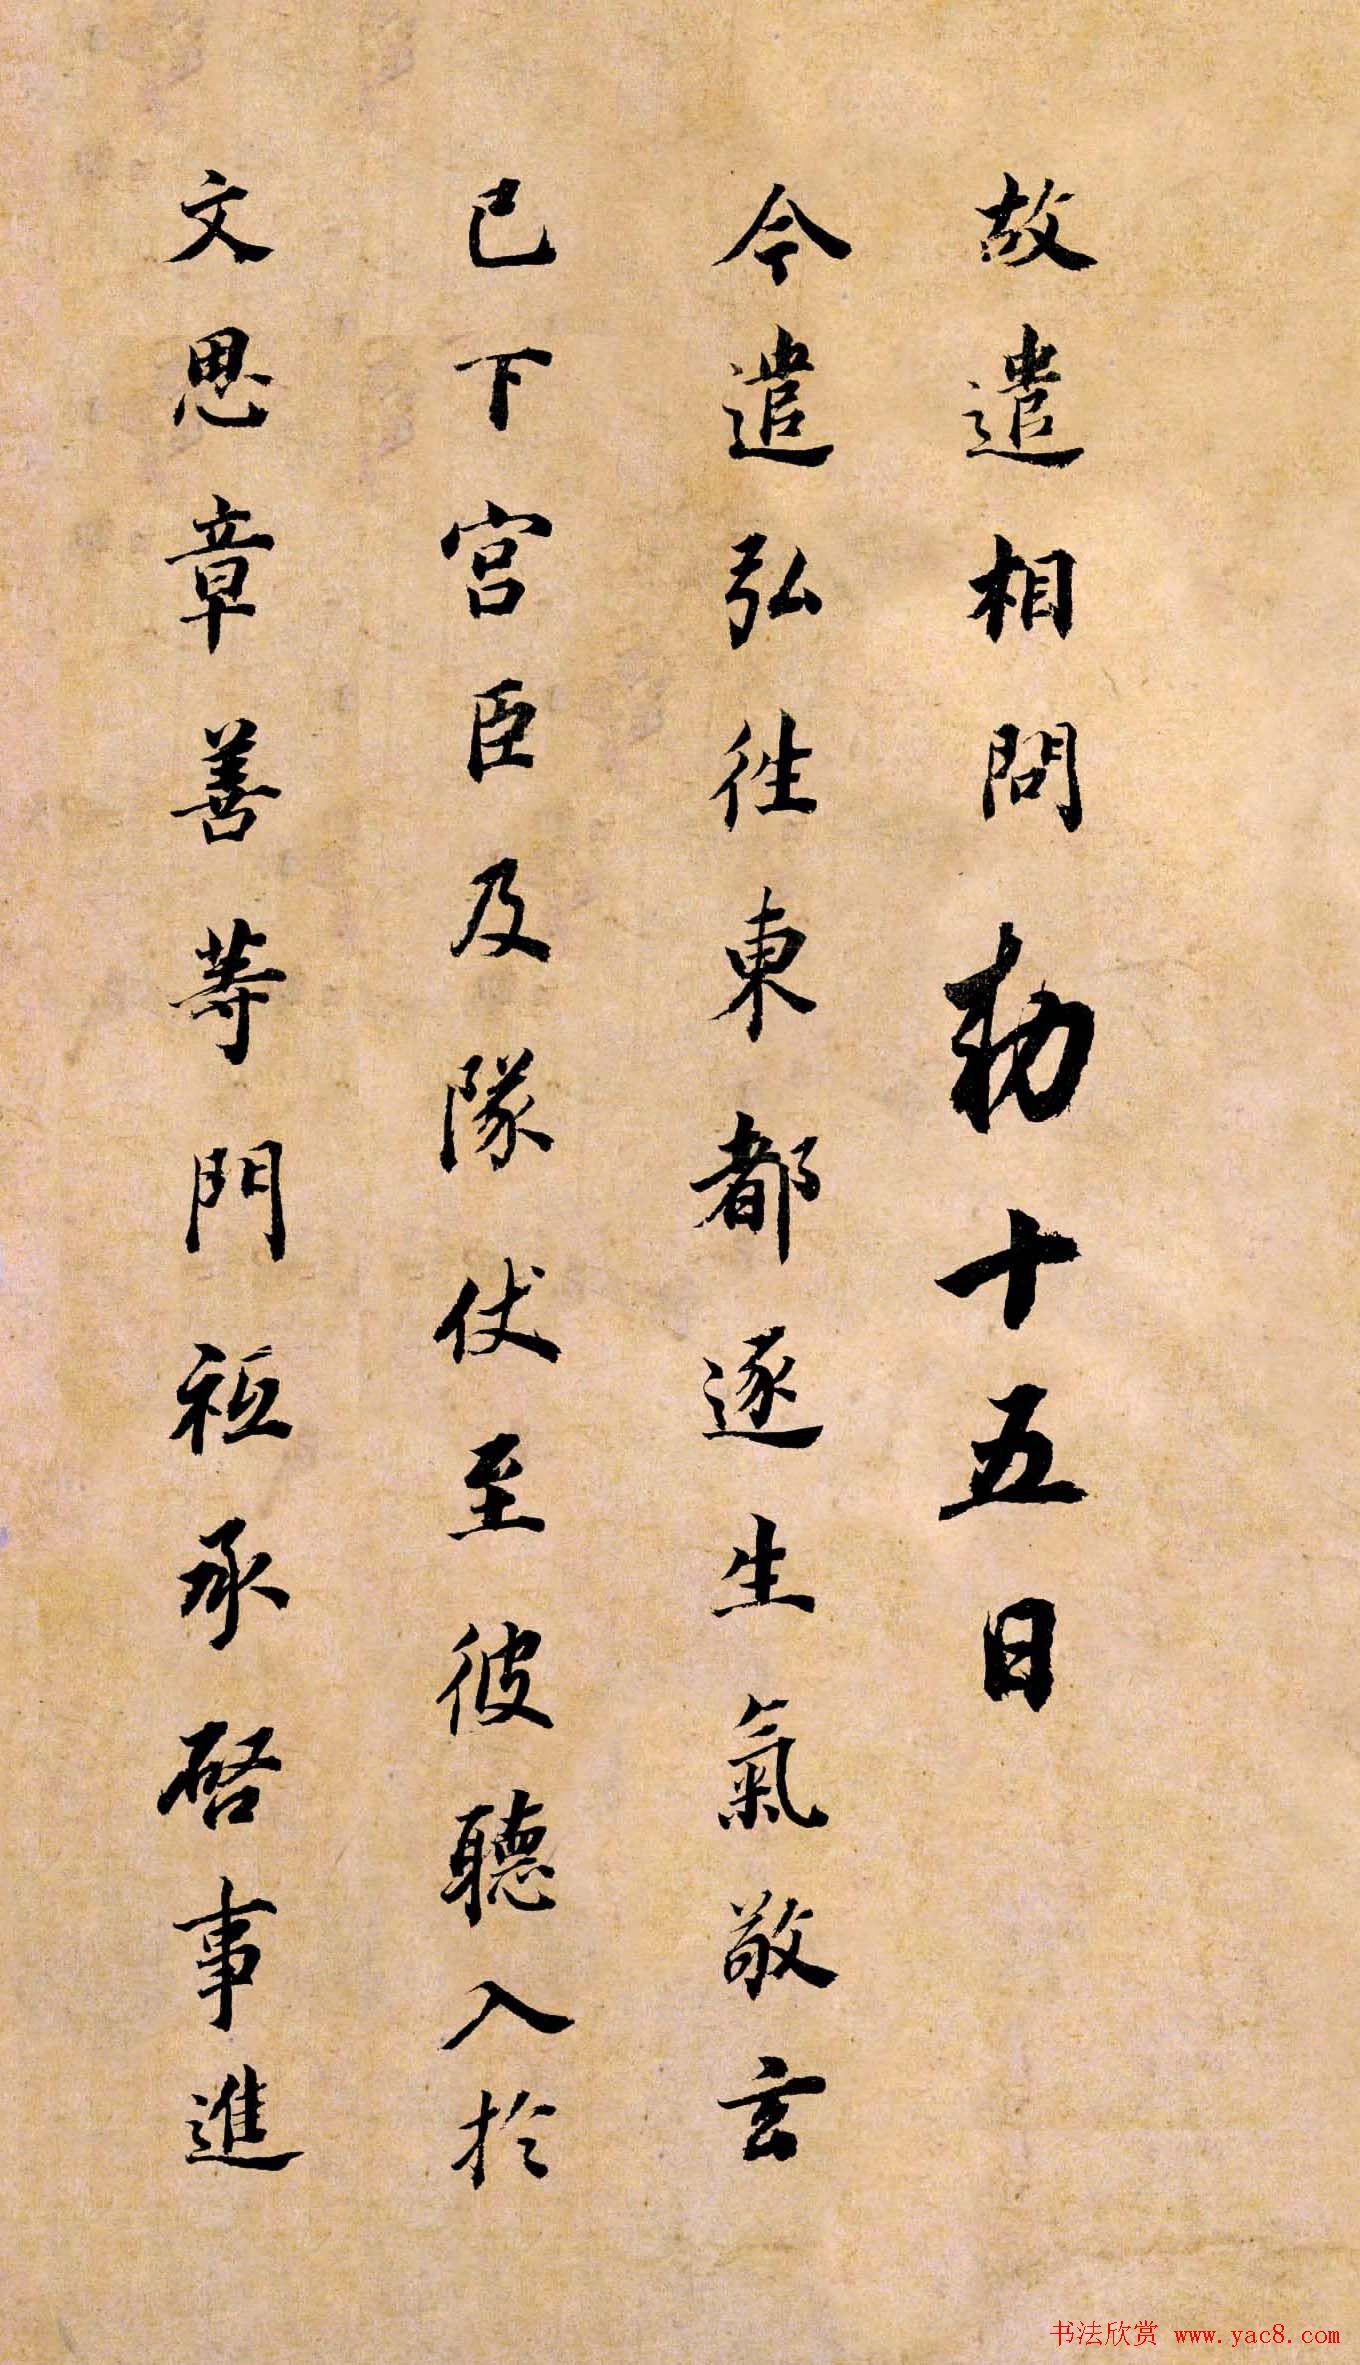 故遣相問勅十五日
今遣弘往東都逐生氣敬玄
已下宮臣及隊仗至彼聽入於
文思章善等門祗承啓事進
书法欣赏 www.yac8.com